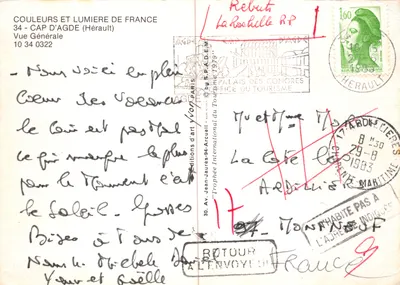 COULEURS ET LUMIERE DE FRANCE
34 - CAP D'AGDE (Hérault)
Vue Générale
10 34 0322
Nous voici en plein
Coeur des vacances
le coin est pas mal
ce qui manque le plus
pour le moment c'est
le soleil. Grosses
Bises à tous de
Nous Michèle
Yvon et Gaëlle
Editions d'art Yvon PARIS
30, Av. Jean-Jaurès 94-Arcueil
Trophée International du Tourisme 1979
© by S.P.A.D.E.M.
Rebuts
La Rochelle RP
1,60
HERAULT
M et Mme
La Côte
ARDILLIÈRES
17 MONTNEUF
France
17 ARDILLIERES
8 H 30
20-8
1983
CHARENTE MARITIME
N'HABITE PAS A
L'ADRESSE INDIQUÉE
RETOUR
A L'ENVOYEUR
17